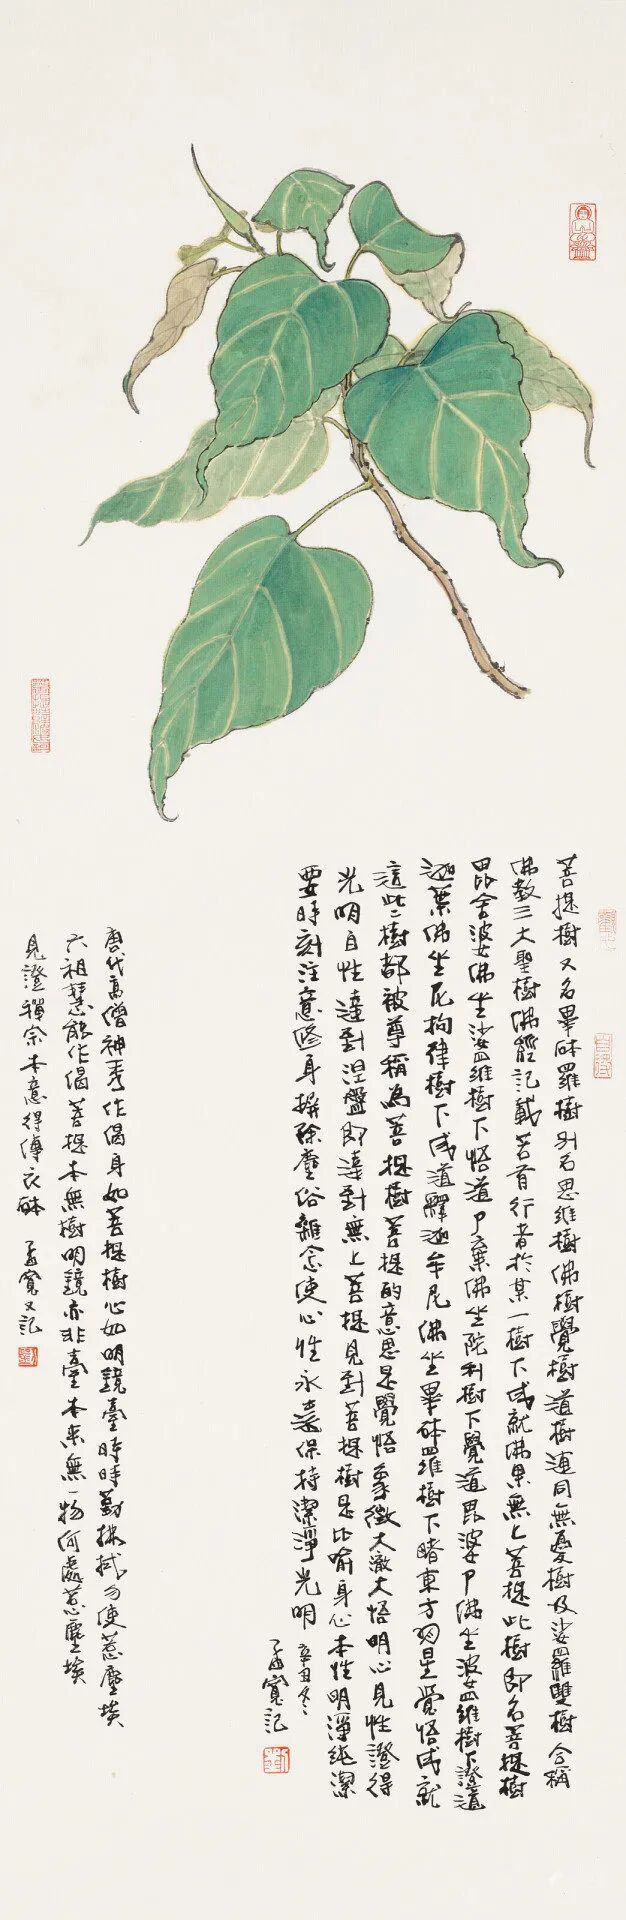 菩提樹又名畢缽羅樹別名思維樹佛樹覺樹道樹連同無憂樹及娑羅雙樹合稱
佛教三大聖樹佛經記載若有行者於某一樹下成就佛果無上菩提此樹即名菩提樹
毘舍婆佛坐娑羅樹下悟道尸棄佛坐陀利樹下覺道毘婆尸佛坐波羅樹下證道
迦葉佛坐尼拘律樹下成道釋迦牟尼佛坐畢缽羅樹下睹東方明星覺悟成就
這些樹都被尊稱為菩提樹菩提的意思是覺悟象徵大澈大悟明心見性證得
光明自性達到涅盤即達到無上菩提見到菩提樹是比喻身心本性明淨純潔
要時刻注意修身摒除塵俗雜念使心性永遠保持潔淨光明
辛丑冬 孟寬記
唐代高僧神秀作偈身如菩提樹心如明鏡臺時時勤拂拭勿使惹塵埃
六祖慧能作偈菩提本無樹明鏡亦非臺本來無一物何處惹塵埃
見證禪宗本意得傳衣缽 孟寬又記